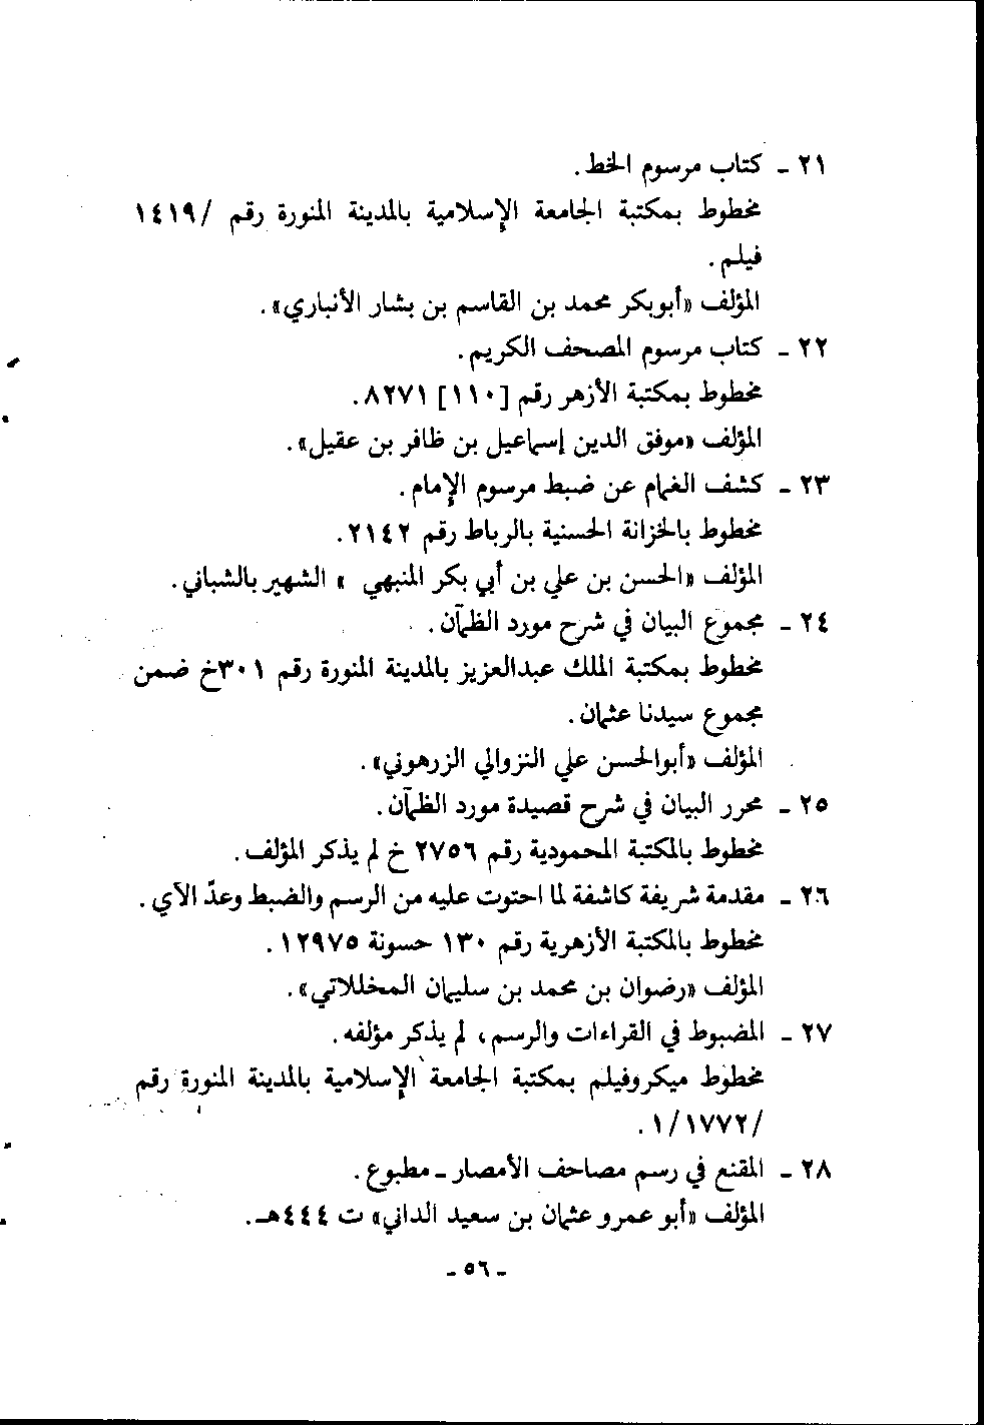 ٢١ ـ كتاب مرسوم الخط .
مخطوط بمكتبة الجامعة الإسلامية بالمدينة المنورة رقم /١٤١٩
فيلم .
المؤلف «أبوبكر محمد بن القاسم بن بشار الأنباري» .
٢٢ ـ كتاب مرسوم المصحف الكريم .
مخطوط بمكتبة الأزهر رقم [١١٠] ٨٢٧١ .
المؤلف «موفق الدين إسماعيل بن ظافر بن عقيل» .
٢٣ ـ كشف الغمام عن ضبط مرسوم الإمام .
مخطوط بالخزانة الحسنية بالرباط رقم ٢١٤٢ .
المؤلف «الحسن بن علي بن أبي بكر المنبهي » الشهير بالشباني .
٢٤ ـ مجموع البيان في شرح مورد الظمآن .
مخطوط بمكتبة الملك عبدالعزيز بالمدينة المنورة رقم ٣٠١خ ضمن
مجموع سيدنا عثمان .
المؤلف «أبوالحسن علي النزوالي الزرهوني» .
٢٥ ـ محرر البيان في شرح قصيدة مورد الظمآن .
مخطوط بالمكتبة المحمودية رقم ٢٧٥٦ خ لم يذكر المؤلف .
٢٦ ـ مقدمة شريفة كاشفة لما احتوت عليه من الرسم والضبط وعدّ الآي .
مخطوط بالمكتبة الأزهرية رقم ١٣٠ حسونة ١٢٩٧٥ .
المؤلف «رضوان بن محمد بن سليمان المخللاتي» .
٢٧ ـ المضبوط في القراءات والرسم، لم يذكر مؤلفه .
مخطوط ميكروفيلم بمكتبة الجامعة الإسلامية بالمدينة المنورة رقم
/١/١٧٧٢ .
٢٨ ـ المقنع في رسم مصاحف الأمصار ـ مطبوع .
المؤلف «أبو عمرو عثمان بن سعيد الداني» ت ٤٤٤هـ .
ـ ٥٦ ـ